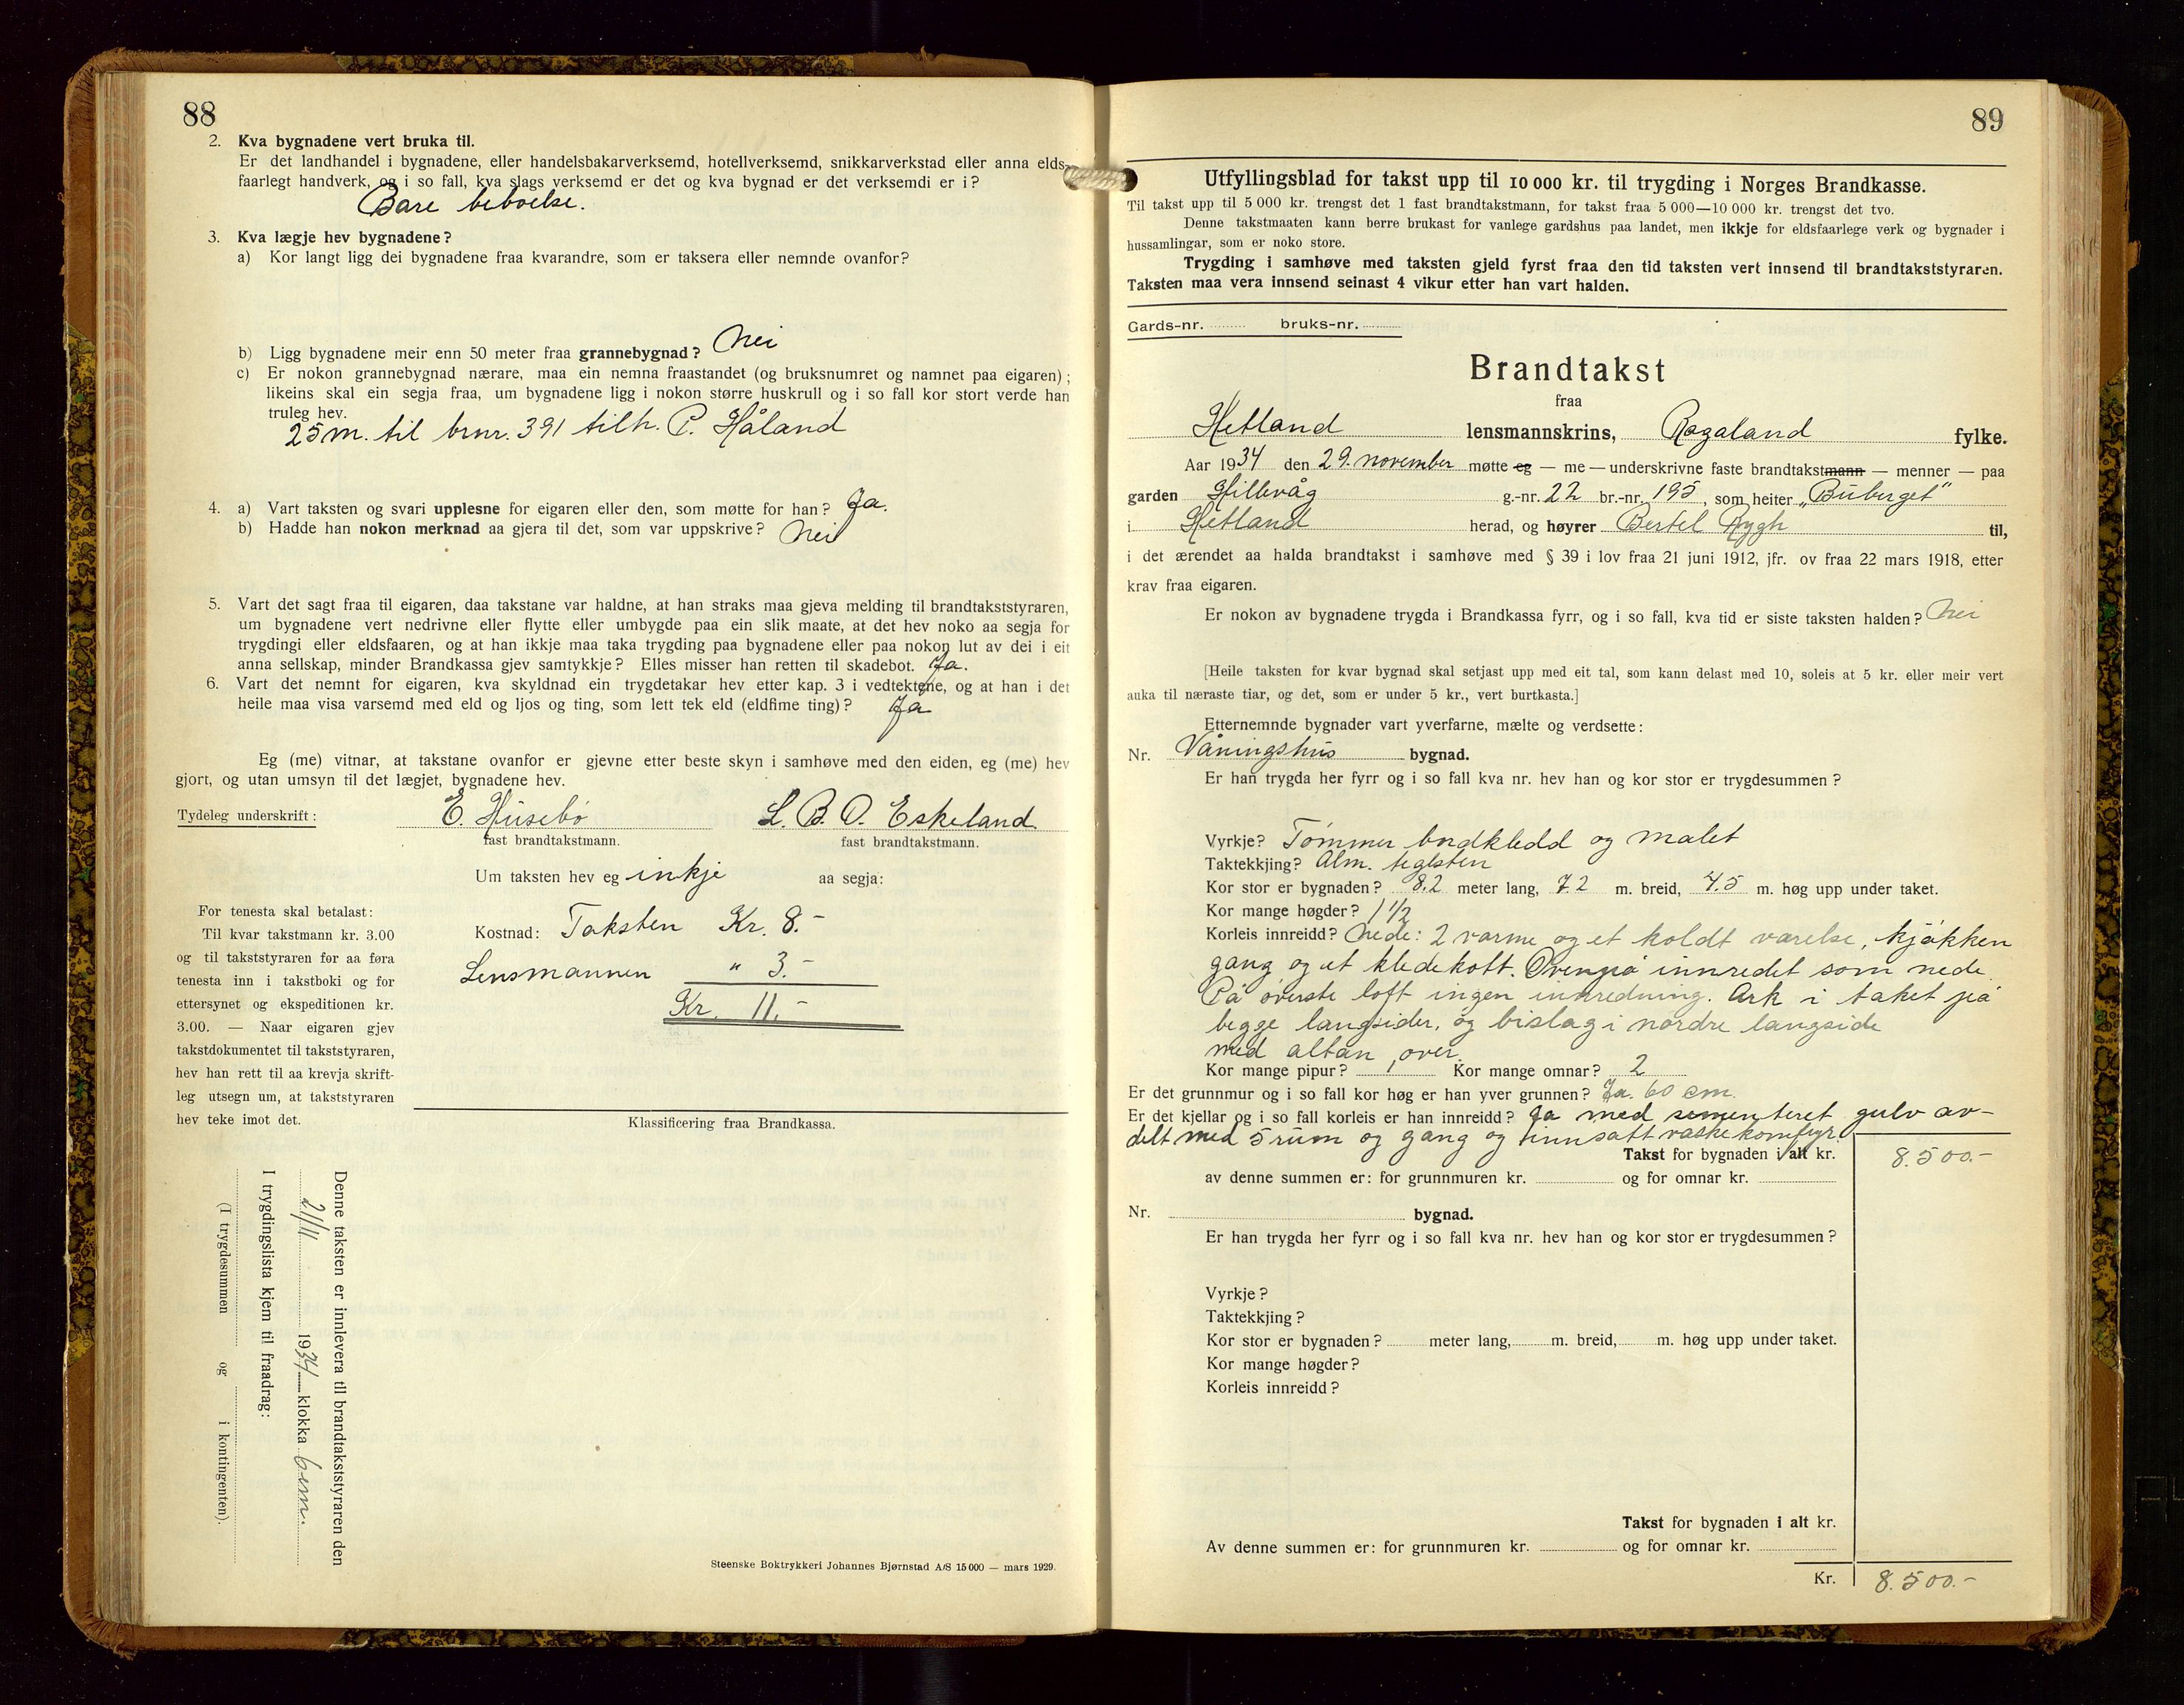 88
2. Kva bygnadene vert bruka til.
Er det landhandel i bygnadene, eller handelsbakarverksemd, hotellverksemd, snikkarverkstad eller anna elds-
faarlegt handverk, og i so fall, kva slags verksemd er det og kva bygnad er det verksemdi er i?
Bare beboelse.
3. Kva lægje hev bygnadene?
a) Kor langt ligg dei bygnadene fraa kvarandre, som er taksera eller nemnde ovanfor?
b) Ligg bygnadene meir enn 50 meter fraa grannebygnad? Nei
c) Er nokon grannebygnad nærare, maa ein nemna fraastandet (og bruksnumret og namnet paa eigaren);
likeins skal ein segja fraa, um bygnadene ligg i nokon større huskrull og i so fall kor stort verde han
truleg hev.
25 m. til brnr. 391 tilh. P. Håland
4. a) Vart taksten og svari upplesne for eigaren eller den, som møtte for han? Ja.
b) Hadde han nokon merknad aa gjera til det, som var uppskrive? Nei
5. Vart det sagt fraa til eigaren, daa takstane var haldne, at han straks maa gjeva melding til brandtakststyraren,
um bygnadene vert nedrivne eller flytte eller umbygde paa ein slik maate, at det hev noko aa segja for
trygdingi eller eldsfaaren, og at han ikkje maa taka trygding paa bygnadene eller paa nokon lut av dei i eit
anna sellskap, minder Brandkassa gjev samtykkje? Elles misser han retten til skadebot. Ja.
6. Vart det nemnt for eigaren, kva skyldnad ein trygdetakar hev etter kap. 3 i vedtektene, og at han i det
heile maa visa varsemd med eld og ljos og ting, som lett tek eld (eldfime ting)? Ja
Eg (me) vitnar, at takstane ovanfor er gjevne etter beste skyn i samhøve med den eiden, eg (me) hev
gjort, og utan umsyn til det lægjet, bygnadene hev.
Tydeleg underskrift: E. Husebø L. B. O. Eskeland
fast brandtakstmann. fast brandtakstmann.
Um taksten hev eg inkje aa segja:
For tenesta skal betalast:
Til kvar takstmann kr. 3.00
og til takststyraren for aa føra
tenesta inn i takstboki og for
ettersynet og ekspeditionen kr.
3.00. — Naar eigaren gjev
takstdokumentet til takststyraren,
hev han rett til aa krevja skrift-
leg utsegn um, at takststyraren
hev teke imot det.
Kostnad: Taksten Kr. 8.-
Lensmannen " 3.-
Kr. 11.-
Klassificering fraa Brandkassa.
Denne taksten er innlevera til brandtakststyraren den
21/11 1934 klokka 6 em.
I trygdingslista kjem til fraadrag:
(I trygdesummen og i kontingenten).
Steenske Boktrykkeri Johannes Bjørnstad A/S 15000 — mars 1929.
89
Utfyllingsblad for takst upp til 10 000 kr. til trygding i Norges Brandkasse.
Til takst upp til 5 000 kr. trengst det 1 fast brandtakstmann, for takst fraa 5 000—10 000 kr. trengst det tvo.
Denne takstmaaten kann berre brukast for vanlege gardshus paa landet, men ikkje for eldsfaarlege verk og bygnader i
hussamlingar, som er noko store.
Trygding i samhøve med taksten gjeld fyrst fraa den tid taksten vert innsend til brandtakststyraren.
Taksten maa vera innsend seinast 4 vikur etter han vart halden.
Gards-nr. bruks-nr.
Brandtakst
fraa
Hetland lensmannskrins, Rogaland fylke.
Aar 1934 den 29. november møtte eg — me — underskrivne faste brandtakstmann — menner — paa
garden Hillevåg g.-nr. 22 br.-nr. 195, som heiter "Buberget"
i Hetland herad, og høyrer Bertel Rygh til,
i det ærendet aa halda brandtakst i samhøve med § 39 i lov fraa 21 juni 1912, jfr. ov fraa 22 mars 1918, etter
krav fraa eigaren.
Er nokon av bygnadene trygda i Brandkassa fyrr, og i so fall, kva tid er siste taksten halden? Nei
[Heile taksten for kvar bygnad skal setjast upp med eit tal, som kann delast med 10, soleis at 5 kr. eller meir vert
auka til næraste tiar, og det, som er under 5 kr., vert burtkasta.]
Etternemnde bygnader vart yverfarne, mælte og verdsette:
Nr. Våningshus bygnad.
Er han trygda her fyrr og i so fall kva nr. hev han og kor stor er trygdesummen?
Vyrkje? Tømmer bordkledd og malet
Taktekkjing? Alm. teglsten
Kor stor er bygnaden? 8.2 meter lang, 7.2 m. breid, 4.5 m. høg upp under taket.
Kor mange høgder? 1 1/2
Korleis innreidd? Nede: 2 varme og et koldt værelse, kjøkken
gang og et kledekott. Ovenpå innredet som nede.
På øverste loft ingen innredning. Ark i taket på
begge langsider, og bislag i nordre langside
med altan over.
Kor mange pipur? 1 Kor mange omnar? 2
Er det grunnmur og i so fall kor høg er han yver grunnen? Ja. 60 cm.
Er det kjellar og i so fall korleis er han innreidd? Ja med sementeret gulv av-
delt med 5 rum og gang og innsatt vaskekomfyr.
Takst for bygnaden i alt kr. 8.500.-
av denne summen er: for grunnmuren kr. og for omnar kr.
Nr. bygnad.
Er han trygda her fyrr og i so fall kva nr. hev han og kor stor er trygdesummen?
Vyrkje?
Taktekkjing?
Kor stor er bygnaden? meter lang, m. breid, m. høg upp under taket.
Kor mange høgder?
Korleis innreidd?
Takst for bygnaden i alt kr.
Av denne summen er: for grunnmuren kr. og for omnar kr.
Kr. 8.500.-